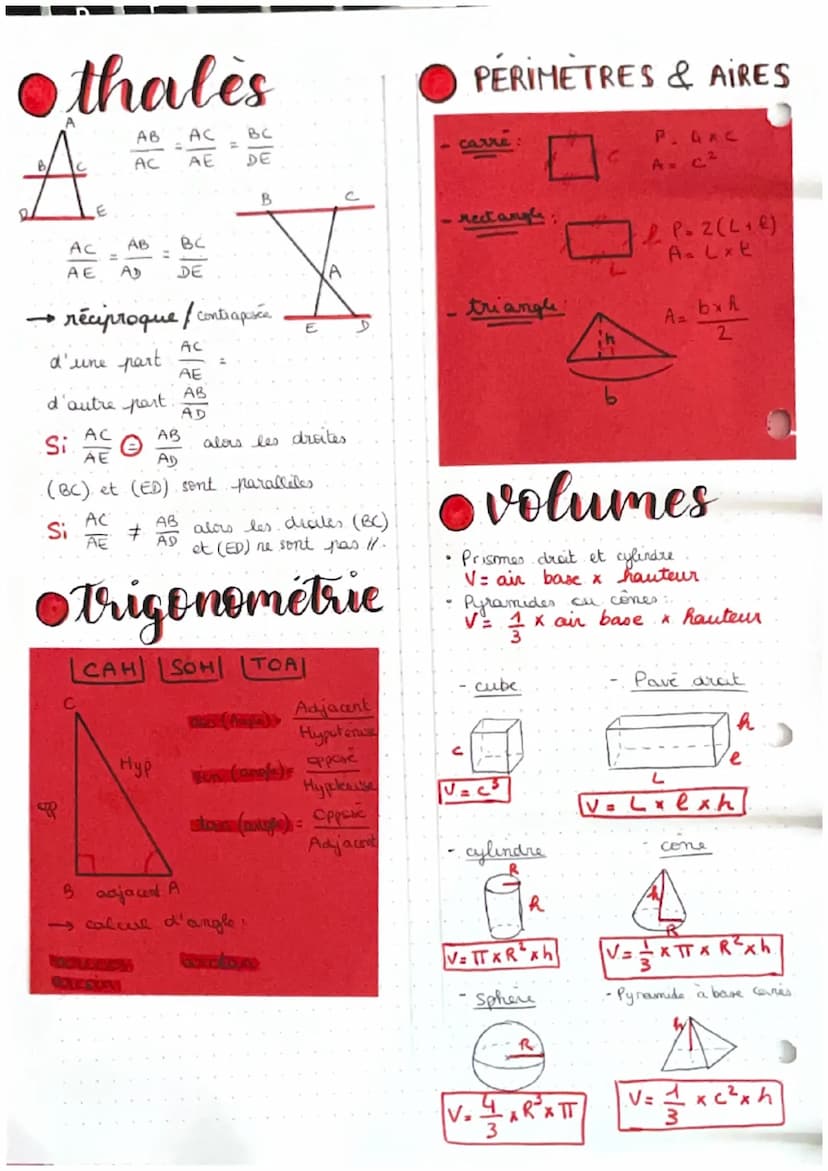 thalès
A
B
C
D
E
AB/AC = AC/AE = BC/DE
B
C
A
E
D
AC/AE = AB/AD = BC/DE
→ réciproque / contraposée
d'une part AC/AE =
d'autre part AB/AD
Si AC/AE = AB/AD alors les droites
(BC) et (ED) sont parallèles
Si AC/AE ≠ AB/AD alors les droites (BC)
et (ED) ne sont pas //.
trigonométrie
CAH SOH TOA
C
Hyp
opp
B adjacent A
cos (angle) = Adjacent/Hypoténuse
sin (angle) = opposé/Hypoténuse
tan (angle) = Opposé/Adjacent
→ calcul d'angle :
arccos arctan
arcsin
PÉRIMÈTRES & AIRES
- carré :
c
P = 4 x c
A = c²
- rectangle :
l
L
P = 2(L + l)
A = L x l
- triangle :
h
b
A = b x h/2
volumes
• Prismes droit et cylindre
V = air base x hauteur
• Pyramides ou cônes :
V = 1/3 x air base x hauteur
- cube
c
V = c³
- Pavé droit
h
l
L
V = L x l x h
- cylindre
R
h
V = π x R² x h
- cône
h
R
V = 1/3 x π x R² x h
- sphère
R
V = 4/3 x R³ x π
- Pyramide à base carrés
h
V = 1/3 x c² x h